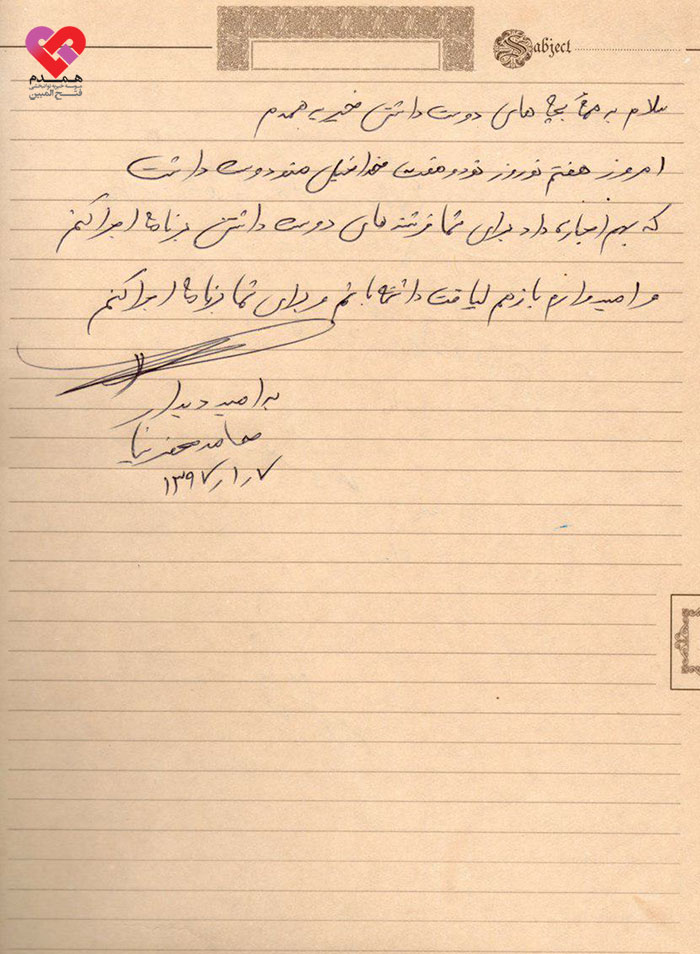 همدم
موسسه خیریه توانبخشی
فتح المبین
Sabject
سلام به همهٔ بچه های دوست داشتنی خیریه همدم
امروز هفتم نوروز نود و هفت خدا خیلی منو دوست داشت
که بهم اجازه داد برای شما فرشته های دوست داشتنی برنامه اجرا کنم
و امیدوارم بازهم لیاقت داشته باشم و برای شما برنامه اجرا کنم
به امید دیدار
حامد
۱۳۹۷،۱،۷